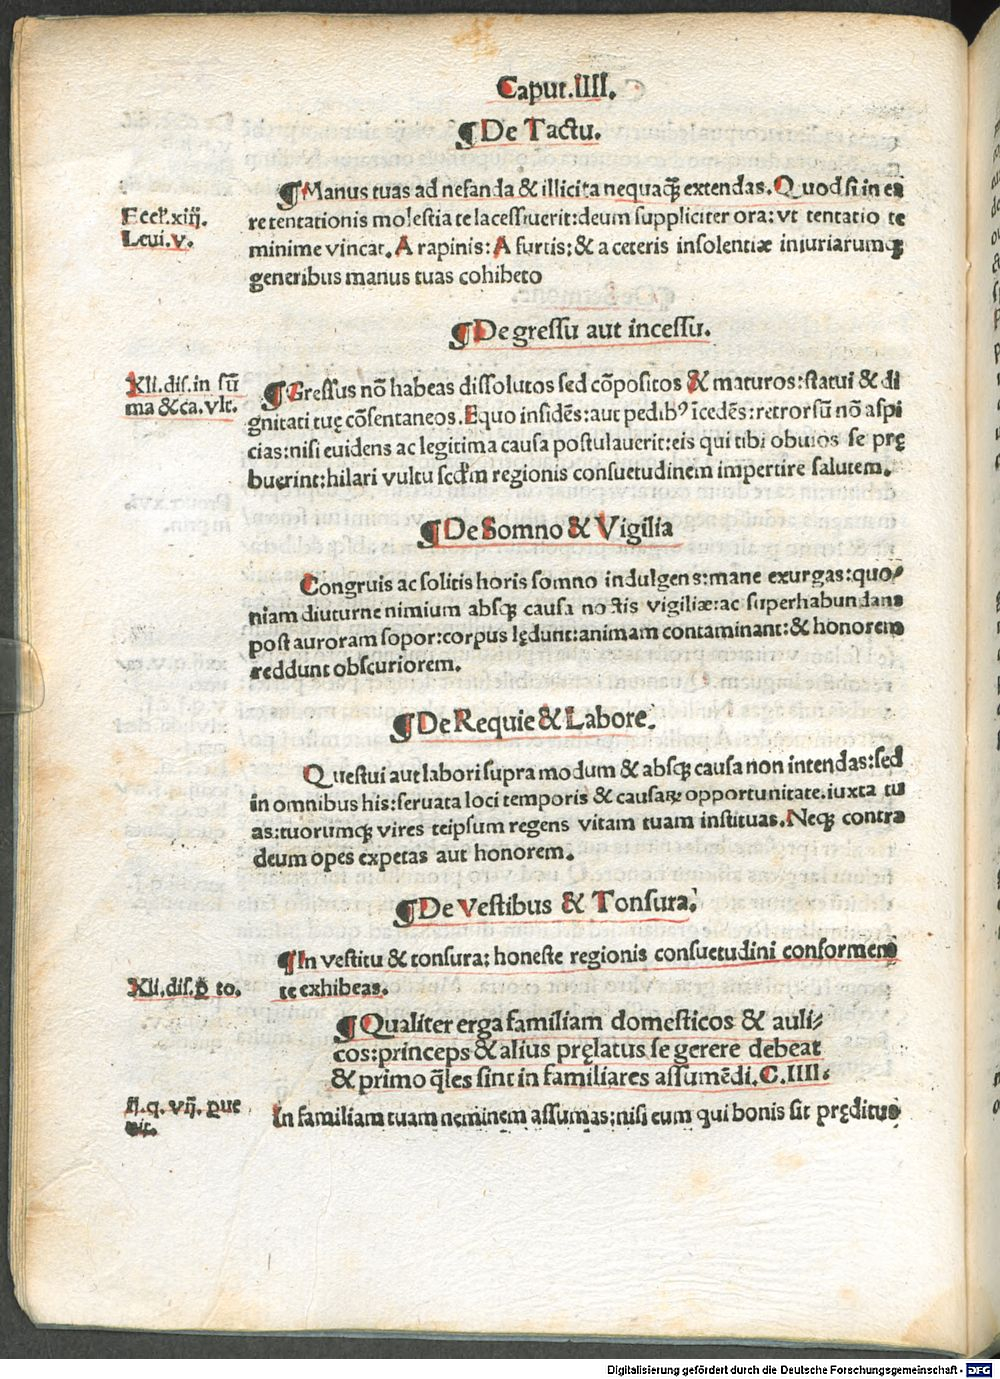 Caput.IIII.
¶De Tactu.
¶Manus tuas ad nefanda & illicita nequaqȝ extendas.Quod si in ea
Eccl'.xiij.
Leui.v.
re tentationis molestia te lacessiuerit:deum suppliciter ora:vt tentatio te
minime vincat.A rapinis:A furtis:& a ceteris insolentiæ iniuriarumqȝ
generibus manus tuas cohibeto
¶De gressu aut incessu.
Xli.dis.in sū
ma & ca.vlt.
¶Gressus nō habeas dissolutos sed cōpositos & maturos:statui & di
gnitati tuę cōsentaneos.Equo insidēs:aut pedibꝰ īcedēs:retrorsū nō aspi
cias:nisi euidens ac legitima causa postulauerit:eis qui tibi obuios se prę
buerint:hilari vultu scđm regionis consuetudinem impertire salutem.
¶De Somno & Vigilia
Congruis ac solitis horis somno indulgens:mane exurgas:quo⸗
niam diuturne nimium absqȝ causa noctis vigiliæ:ac superhabundans
post auroram sopor:corpus lędunt:animam contaminant:& honorem
reddunt obscuriorem.
¶De Requie & Labore.
Questui aut labori supra modum & absqȝ causa non intendas:sed
in omnibus his:seruata loci temporis & causaꝝ opportunitate.iuxta tu
as:tuorumqȝ vires teipsum regens vitam tuam instituas.Neqȝ contra
deum opes expetas aut honorem.
¶De Vestibus & Tonsura.
¶In vestitu & tonsura:honeste regionis consuetudini conformem
Xli.dis.ꝑ to.
te exhibeas.
¶Qualiter erga familiam domesticos & auli⸗
cos:princeps & alius pręlatus se gerere debeat
& primo q̄les sint in familiares assumēdi.C.IIII.
ij.q.vij.ꝓue
nit.
In familiam tuam neminem assumas:nisi eum qui bonis sit pręditus
Digitalisierung gefördert durch die Deutsche Forschungsgemeinschaft - DFG